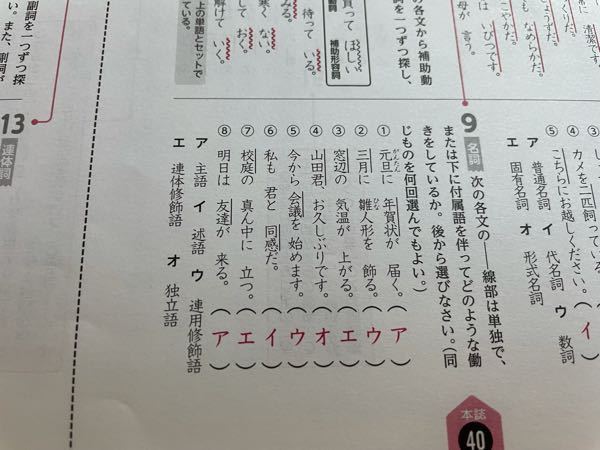 清潔です。
もち なめらかだ。
は いびつです。
こやかだ。
母が 言う。
買って ほしい
補助形容詞
の各文から補助動
詞を一つずつ探し、
みる。
待って いる。
寒く ない。
して お
解けて いく。
上の単語とセットで
ている。
副詞を一つずつ探
④ カメを二匹飼ってい
⑤ こちらにお越しください。（イ）
ア 普通名詞 イ 代名詞 ウ 数詞
エ 固有名詞 オ 形式名詞
9 名詞 次の各文の――線部は単独で、
または下に付属語を伴ってどのような働
きをしているか。後から選びなさい。（同
じものを何回選んでもよい。）
① 元旦に 年賀状が 届く。（ア）
がんたん
② 三月に 雛人形を 飾る。（ウ）
ひな
③ 窓辺の 気温が 上がる。（エ）
④ 山田君、お久しぶりです。（オ）
⑤ 今から 会議を 始めます。（ウ）
⑥ 私も 君と 同感だ。（イ）
⑦ 校庭の 真ん中に 立つ。（エ）
⑧ 明日は 友達が 来る。（ア）
ア 主語 イ 述語 ウ 連用修飾語
エ 連体修飾語 オ 独立語
13 連体詞
本誌
40